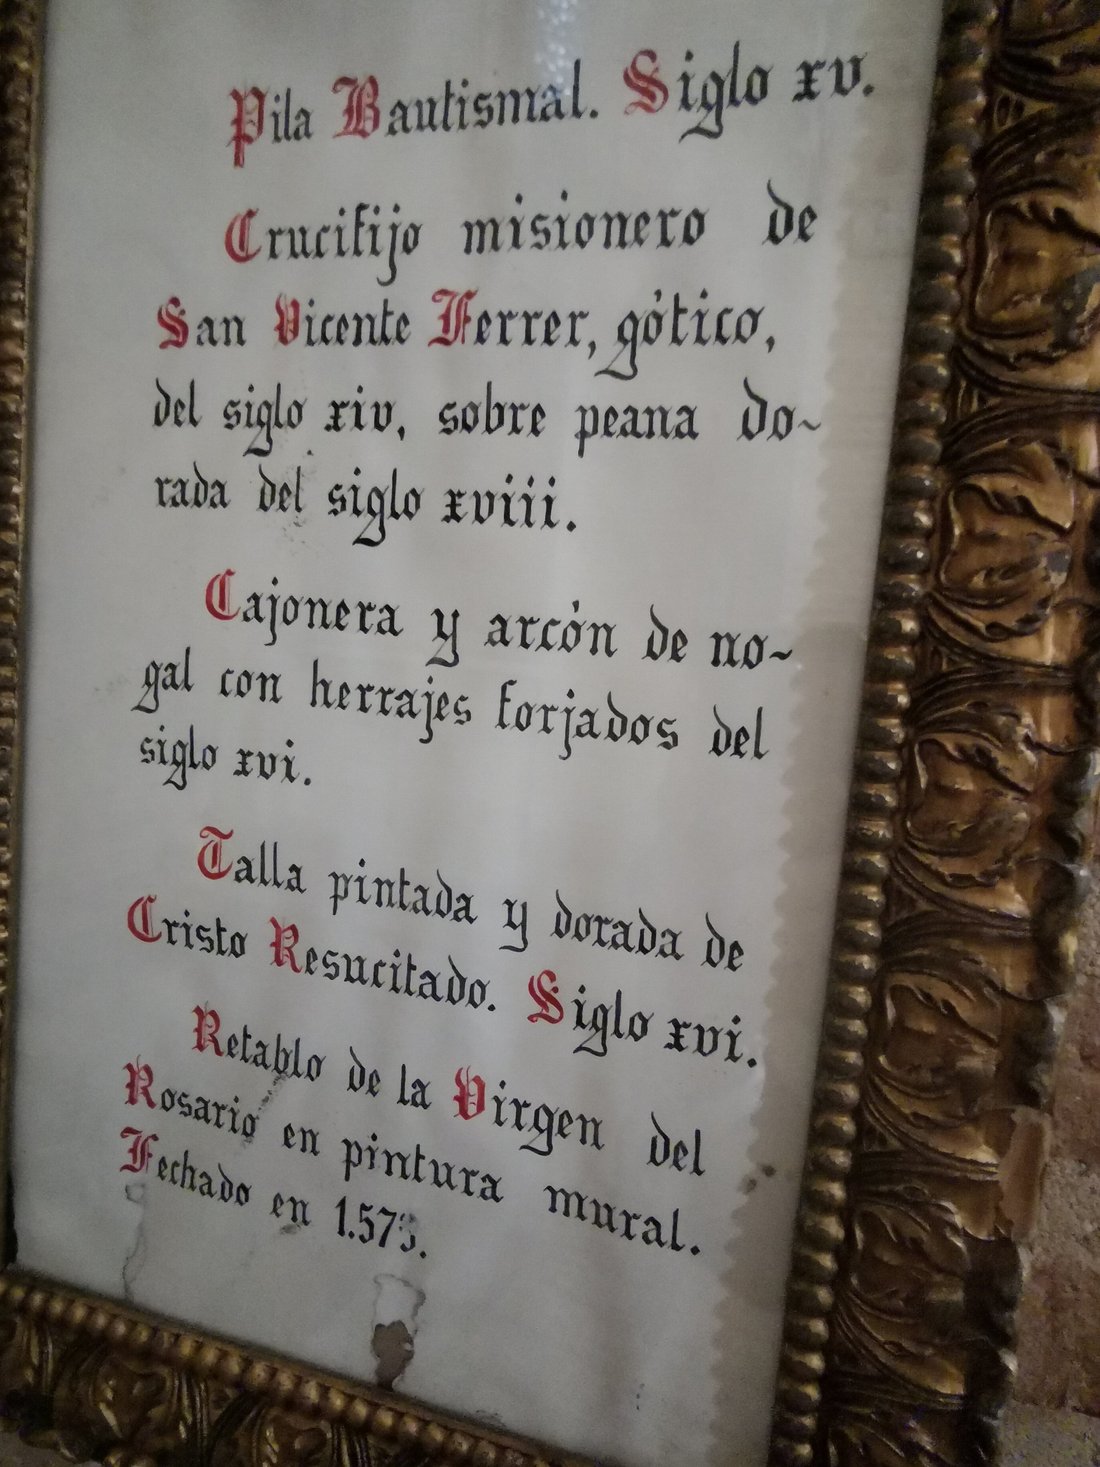 Pila Bautismal. Siglo xv.
Crucifijo misionero de
San Vicente Ferrer, gótico,
del siglo xiv, sobre peana do-
rada del siglo xviii.
Cajonera y arcón de no-
gal con herrajes forjados del
siglo xvi.
Talla pintada y dorada de
Cristo Resucitado. Siglo xvi.
Retablo de la Virgen del
Rosario en pintura mural.
Fechado en